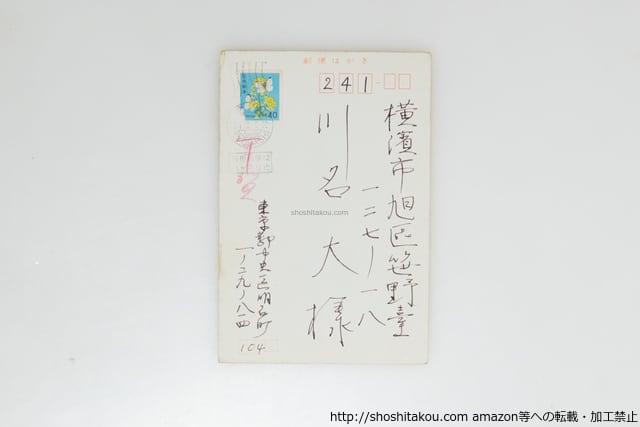 郵便はがき
241
横濱市旭區笹野臺
一二七ノ一八
川名大様
40
東京都中央区明石町
一ノ二九ノ八一四
104
shoshitakou.com
http://shoshitakou.com amazon等への転載・加工禁止